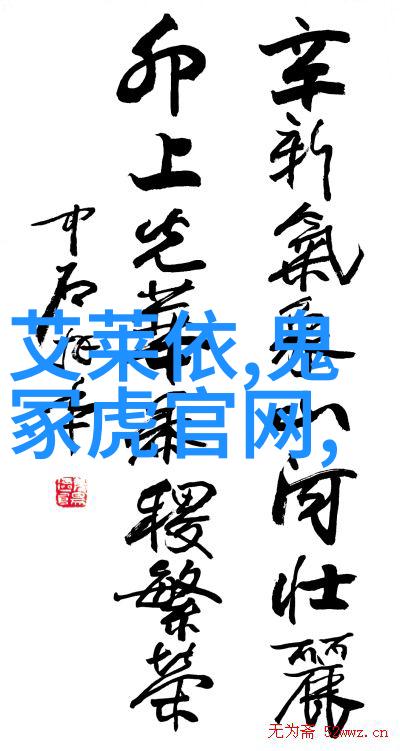 辛新氣象山河壯麗
卯上光華稷繁榮
中石
艾莱依,鬼
冢虎官网,
无为斋 52wwz.cn